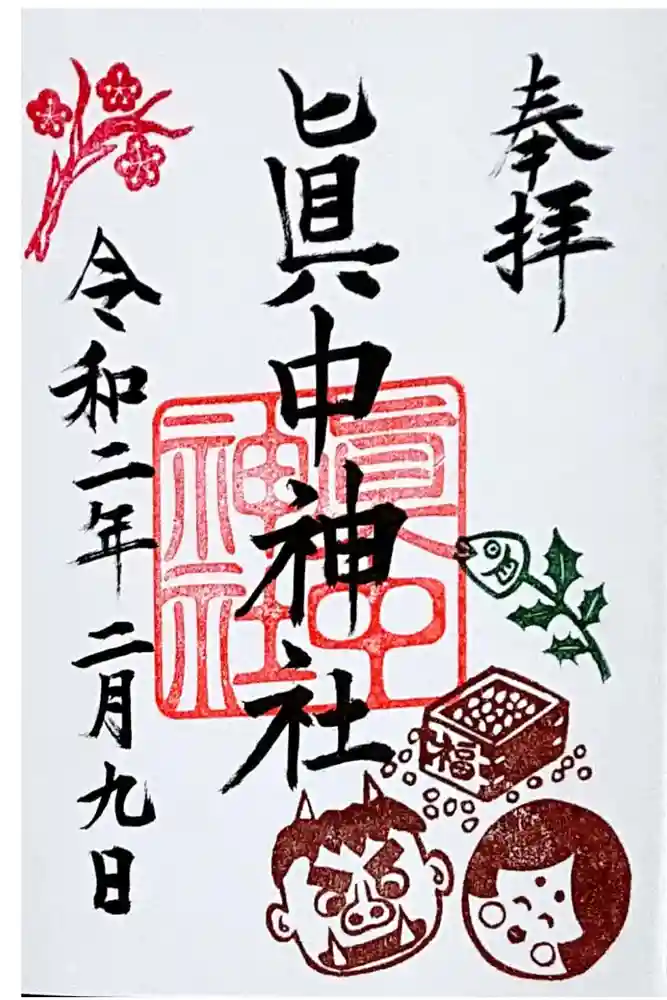 奉拝
眞中神社
眞中神社
令和二年二月九日
福